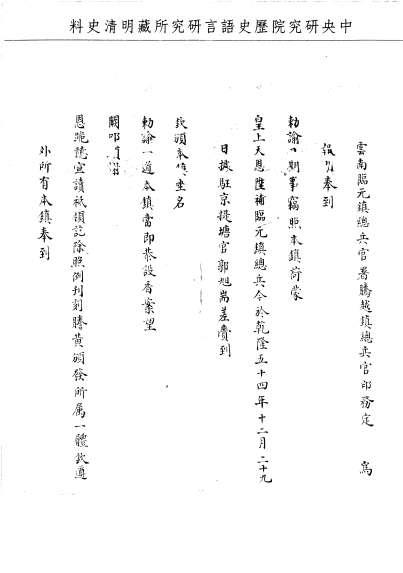 中央研究院歷史語言研究所藏明清史料
雲南臨元鎮總兵官署騰越鎮總兵官印務定 為
報 奉到
勅諭 期事竊照本鎮荷蒙
皇上天恩陞補臨元鎮總兵今於乾隆五十四年十二月二十九
日據駐京提塘官郭旭嵩差賫到
欽頒本 坐名
勅諭一道本鎮當即恭設香案望
闕叩
恩跪聽宣讀祗領訖除照例刊刻謄黃頒發所属一體欽遵
外所有本鎮奉到